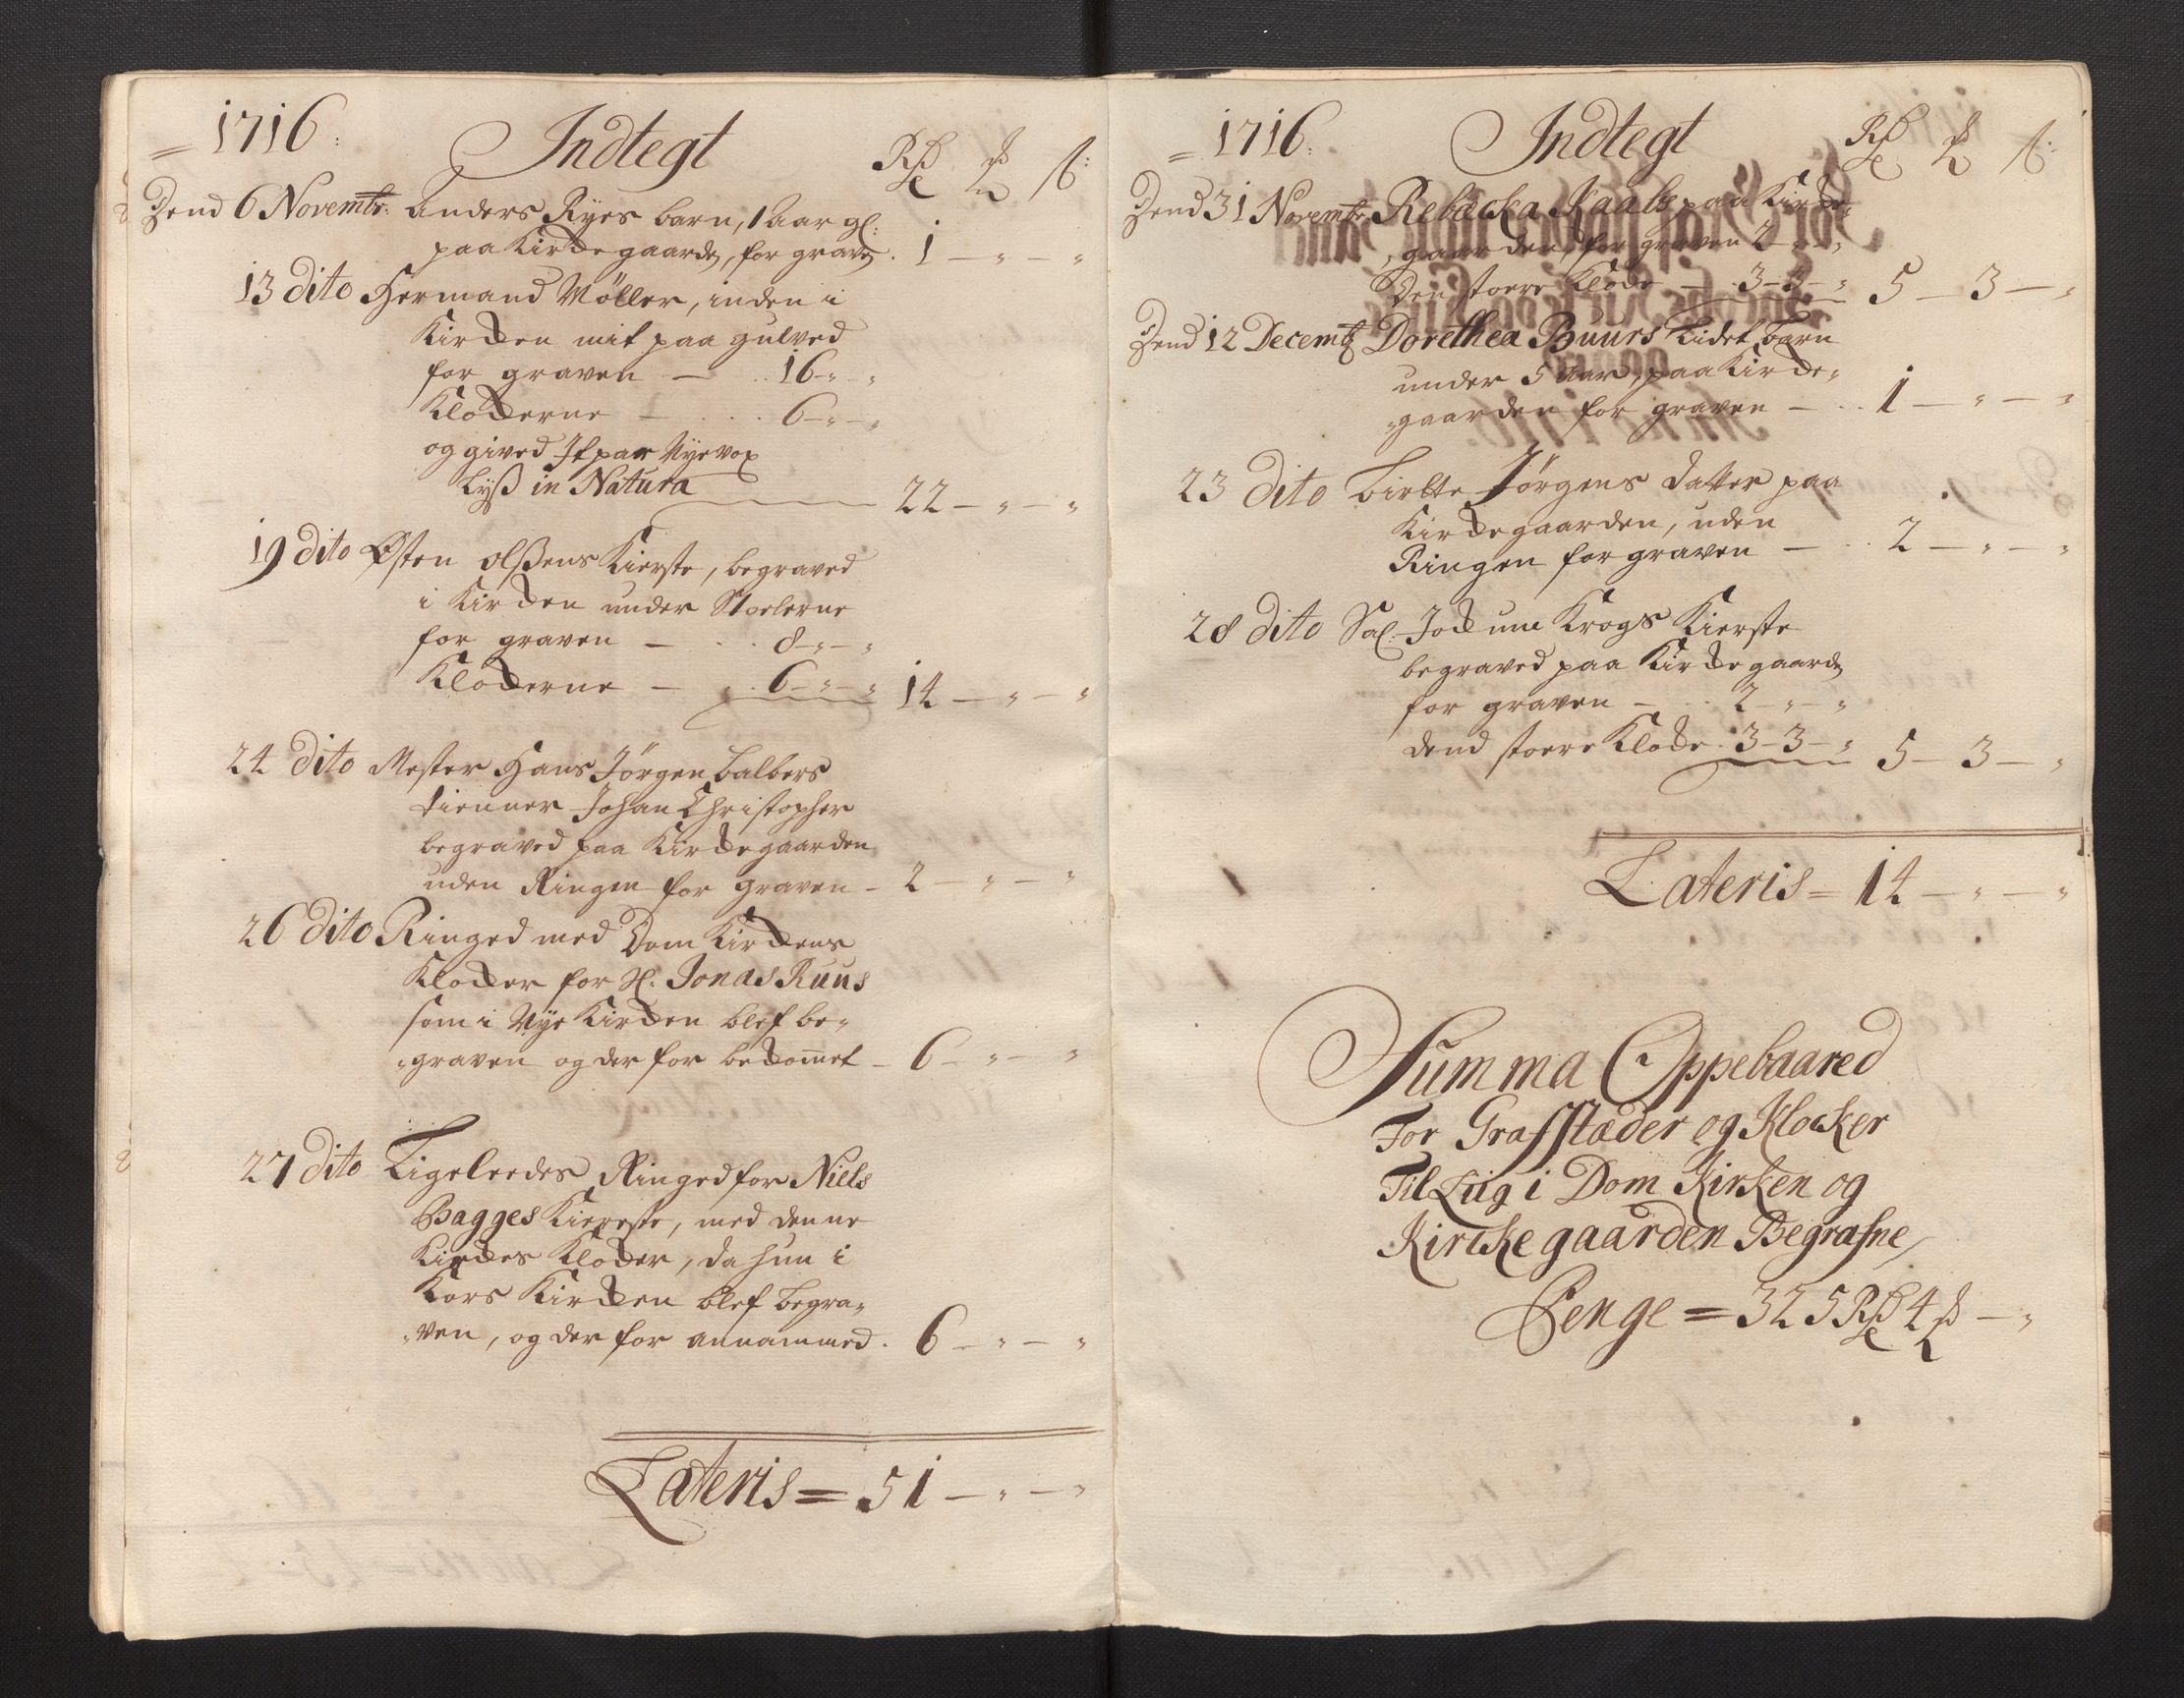 1716: Indtegt Rdr ɱ s:
Dend 6 Novembr: Anders Ryes barn, 1 Aar gl:
paa Kirckegaarden, for graven . 1 - „ - „
13 Dito Hermand Möller, inden i
Kircken mit paa gulved
for graven - . . 16 - „ - „
Klockerne - . . . 6 - „ - „
og gived It par Nye vox
Lyß in Natura 22 - „ - „
19 Dito Østen Olßens Kierste, begraved
i Kircken under Stoelerne
for graven - . . 8 - „ - „
Klockerne - . 6 - „ - „ 14 - „ - „
24 Dito Mester Hans Jörgen Balbers
tienner Johan Christopher
begraved paa Kirckegaarden
uden Ringen for graven - 2 - „ - „
26 Dito Ringed med Dom Kirckens
Klocker for H: Jonas Ruus
som i Nye Kircken blef be„
„graven og der for bekommet - 6 - „ - „
27 Dito Ligeleedes Ringed for Niels
Bagges Kiereste, med denne
Kirckes Klocker, da hun i
Kors Kircken blef begra„
„ven, og der for annammed . 6 - „ - „
Lateris = 51 - „ - „
1716: Indtegt Rdr ɱ s:
Dend 31 Novembr Rebecka Kaals paa Kircke„
„gaarden, for graven 2 - „ - „
Den stoere Klocke - 3 - 3 - „ 5 - 3 - „
Dend 12 Decembr Dorethea Buurs Lidet barn
under 5 Aar, paa Kircke„
„gaarden for graven - . . 1 - „ - „
23 Dito Birtte Jörgens datter paa
Kirckegaarden, uden
Ringen for graven - . . 2 - „ - „
28 Dito Sal: Jockum Krogs Kierste
begraved paa Kirckegaarden
for graven - . . 2 - „ - „
dend stoere Klocke . 3 - 3 - „ 5 - 3 - „
Lateris = 14 - „ - „
Summa Oppebaared
For Grafstæder og Klocker
Til Liig i Dom Kirken og
Kircke gaarden Begrafne,
Penge = 325 Rdr 4 ɱ - „